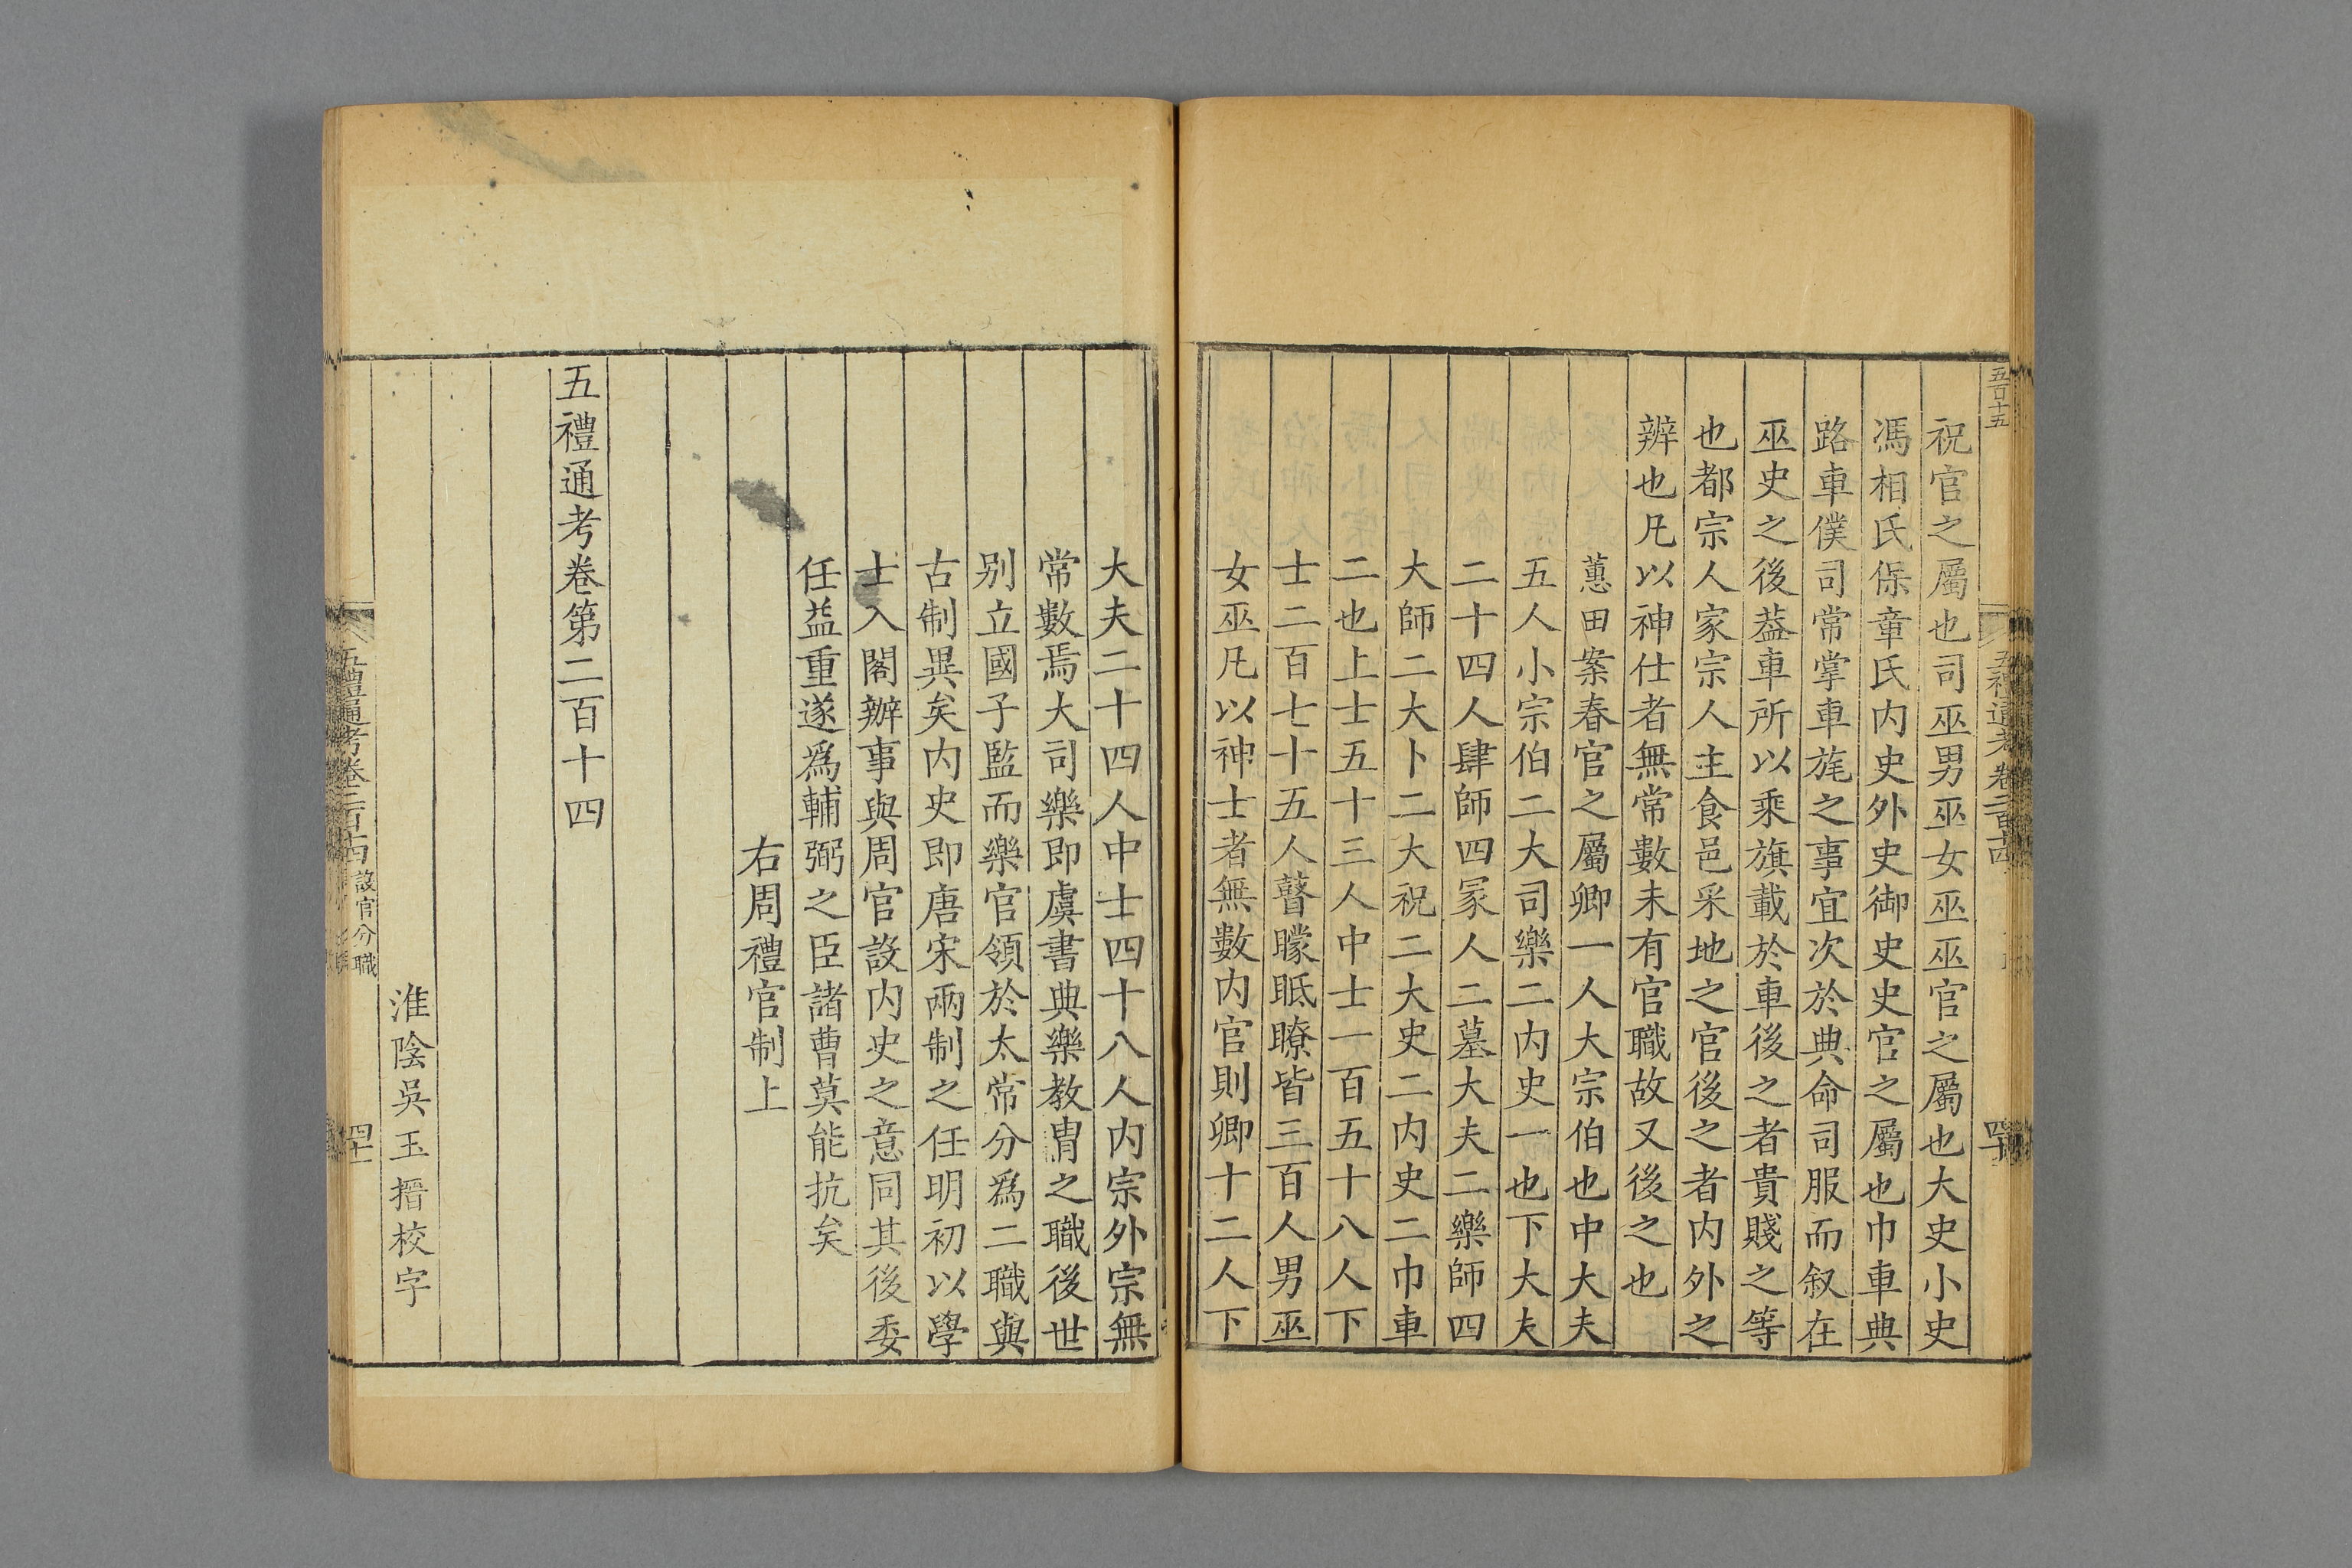 五百十五
五禮通考卷二百十四
四十
祝官之屬也司巫男巫女巫巫官之屬也大史小史
馮相氏保章氏内史外史御史史官之屬也巾車典
路車僕司常掌車旄之事宜次於典命司服而叙在
巫史之後葢車所以乘旗載於車後之者貴賤之等
也都宗人家宗人主食邑采地之官後之者内外之
辨也凡以神仕者無常數未有官職故又後之也
蕙田案春官之屬卿一人大宗伯也中大夫
五人小宗伯二大司樂二内史一也下大夫
二十四人肆師四冢人二墓大夫二樂師四
大師二大卜二大祝二大史二内史二巾車
二也上士五十三人中士一百五十八人下
士二百七十五人瞽矇眡瞭皆三百人男巫
女巫凡以神士者無數内官則卿十二人下
大夫二十四人中士四十八人内宗外宗無
常數焉大司樂即虞書典樂教胄之職後世
别立國子監而樂官領於太常分爲二職與
古制異矣内史即唐宋兩制之任明初以學
士入閣辦事與周官設内史之意同其後委
任益重遂爲輔弼之臣諸曹莫能抗矣
右周禮官制上
五禮通考卷第二百十四
淮陰吳玉搢校字
五禮通考卷二百十四 設官分職
四十一